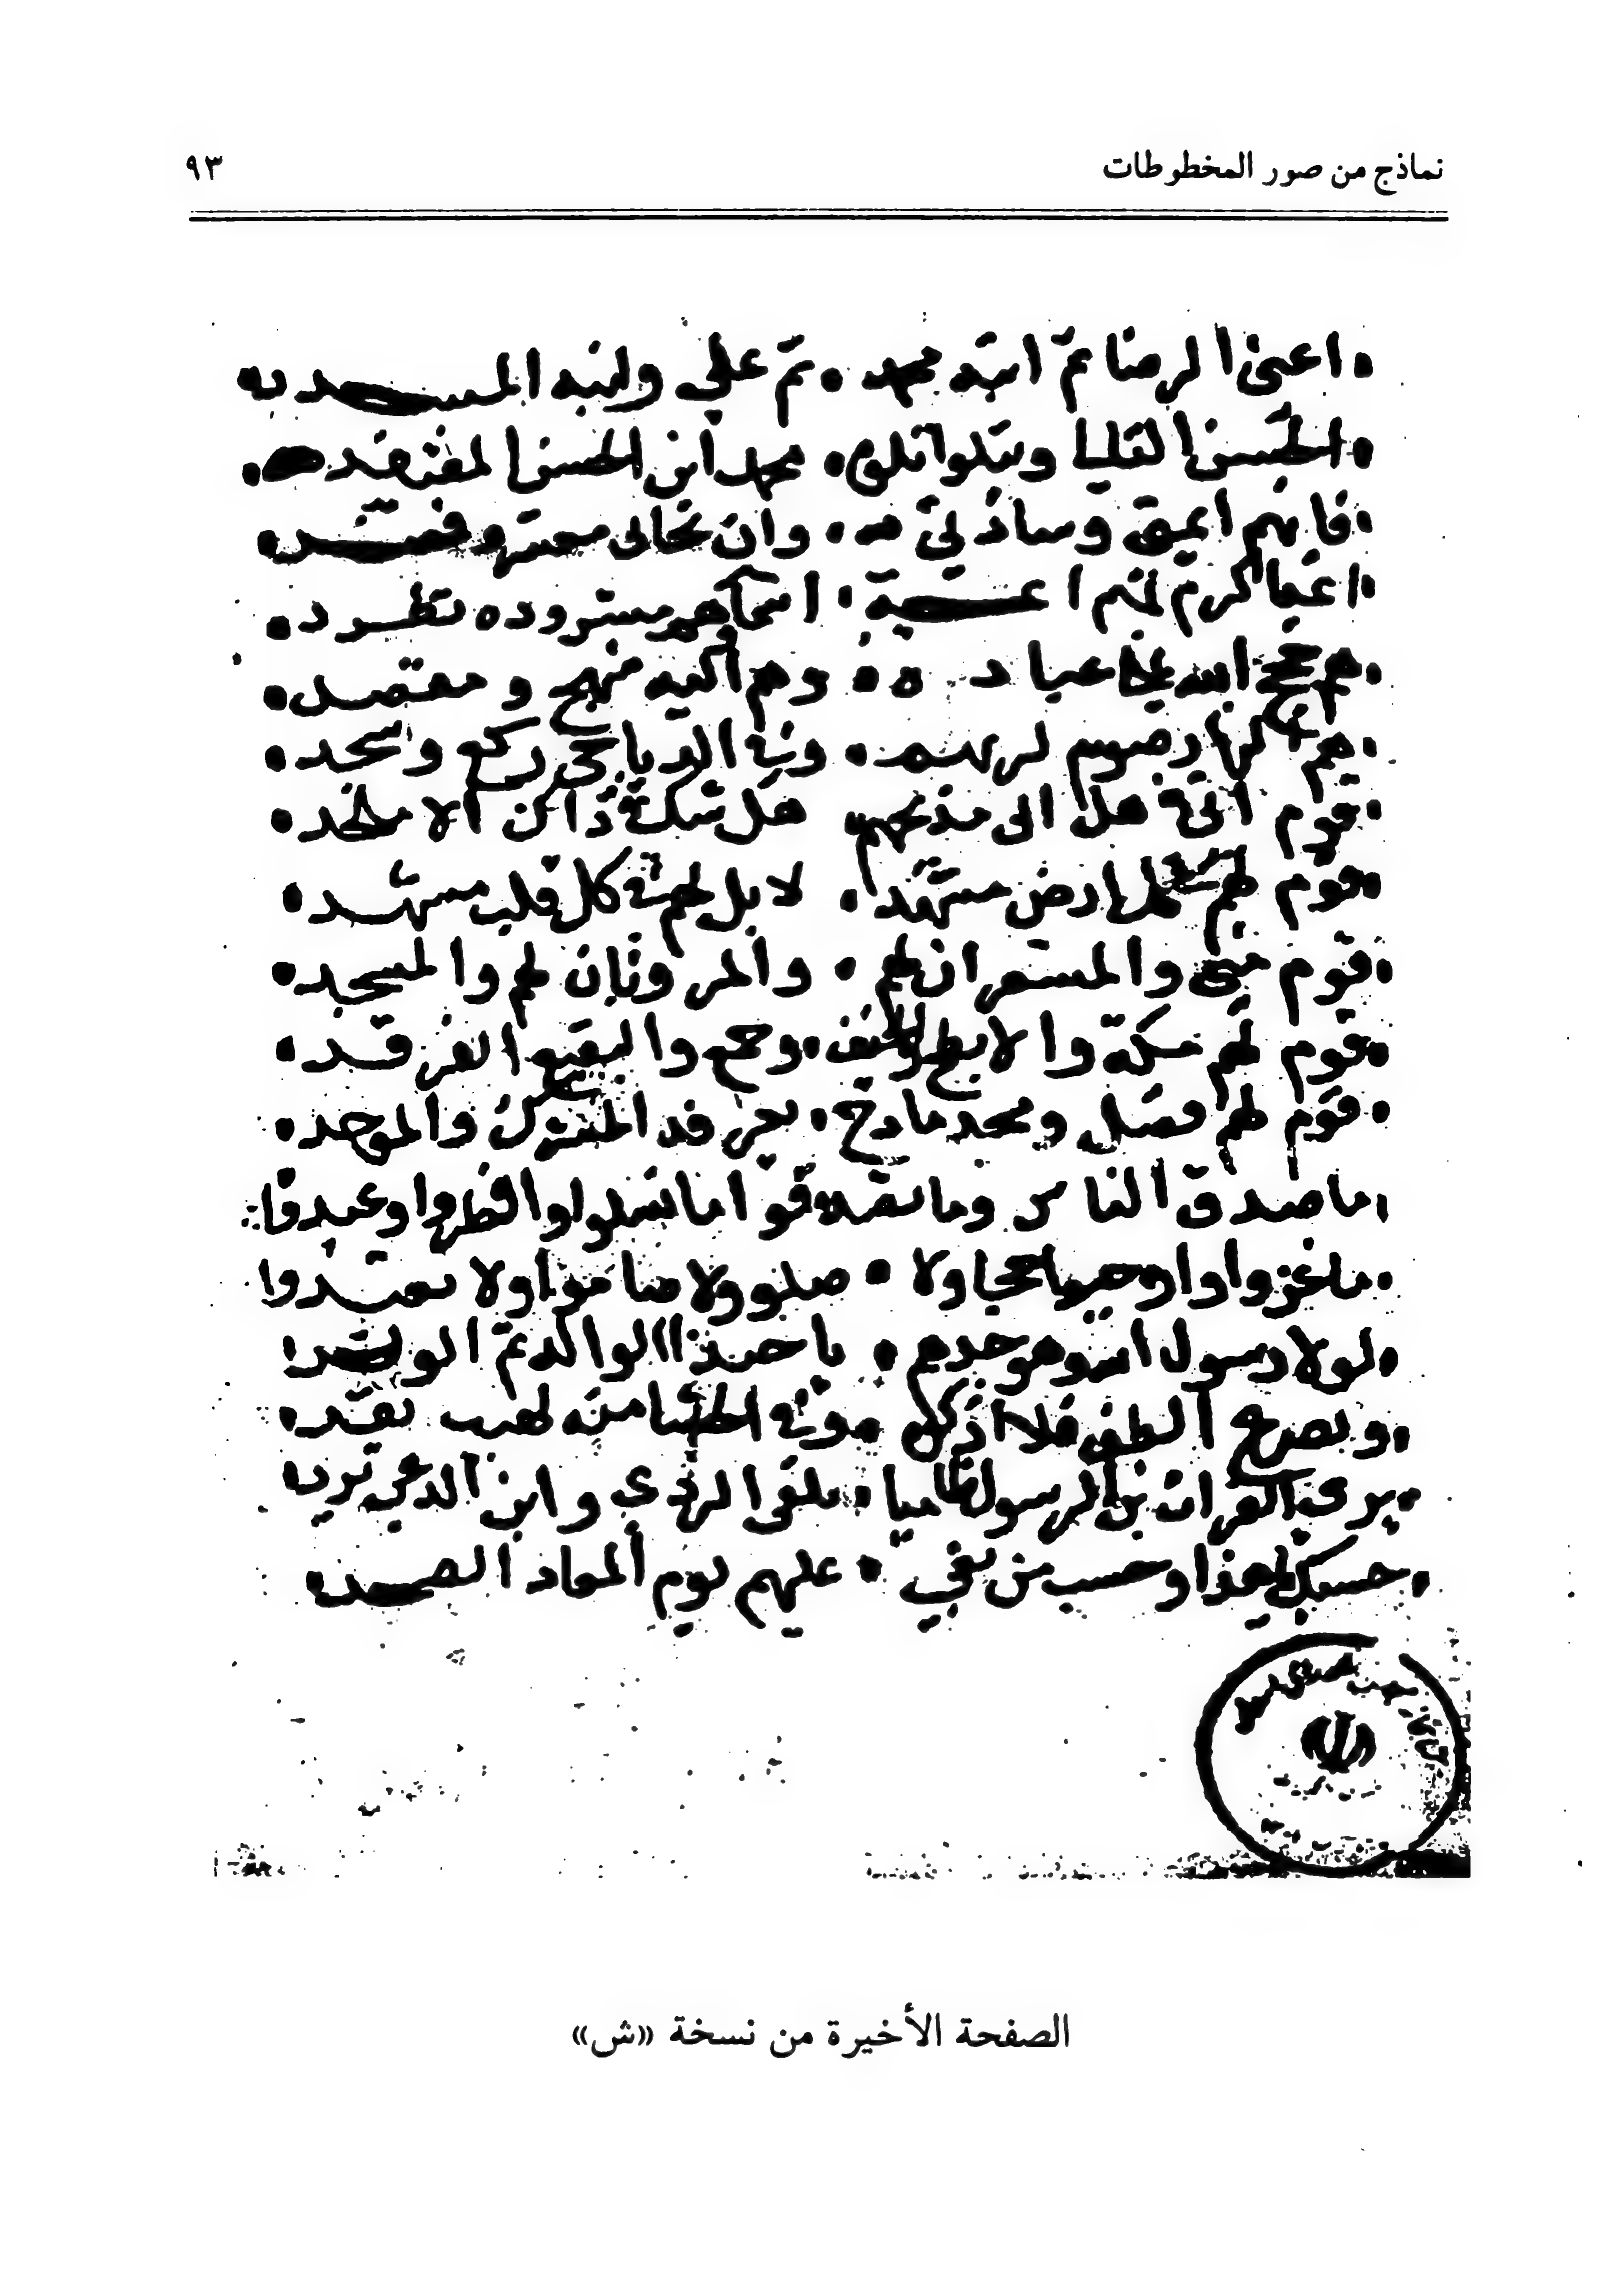 نماذج من صور المخطوطات
٩٣
اعنى الرضا ثم ابنه محمد ثم علي وابنه المسدد
الحسن التالي ويتلو تلوه محمد ابن الحسن المفتقد
فانهم ايمتي وسادتي وان لحاني معشر وفندوا
ايمة اكرم بهم ايمة اسماؤهم مسروده تطرد
هم حجج الله على عباده وهم اليه منهج ومقصد
هم النهار صوم لربهم وفي الدياجي ركع وسجد
قوم اتى هل اتى مدحهم هل شك في ذلك الا ملحد
قوم لهم في كل ارض مشهد لا بل لهم في كل قلب مشهد
قوم منى والمشعران لهم والمروتان لهم والمسجد
قوم لهم مكة والابطح والخيف وجمع والبقيع الغرقد
قوم لهم فضل ومجد باذخ يعرفه المشرك والموحد
ما صدق الناس وما تصدقوا ما نسكوا وافطروا وعيدوا
ما غزوا واوجبوا حجا ولا صلوا ولا صاموا ولا تعبدوا
لولا رسول الله وهو جدهم يا حبذا الوالد ثم الولد
ومصرع الطف فلا اذكره ففي الحشا منه لهيب تقد
يرى الفرات ابن الرسول ظاميا يلقى الردى وابن الدعي يرد
حسبك يا هذا وحسب من بغى عليهم يوم المعاد الصمد
الصفحة الأخيرة من نسخة «ش»